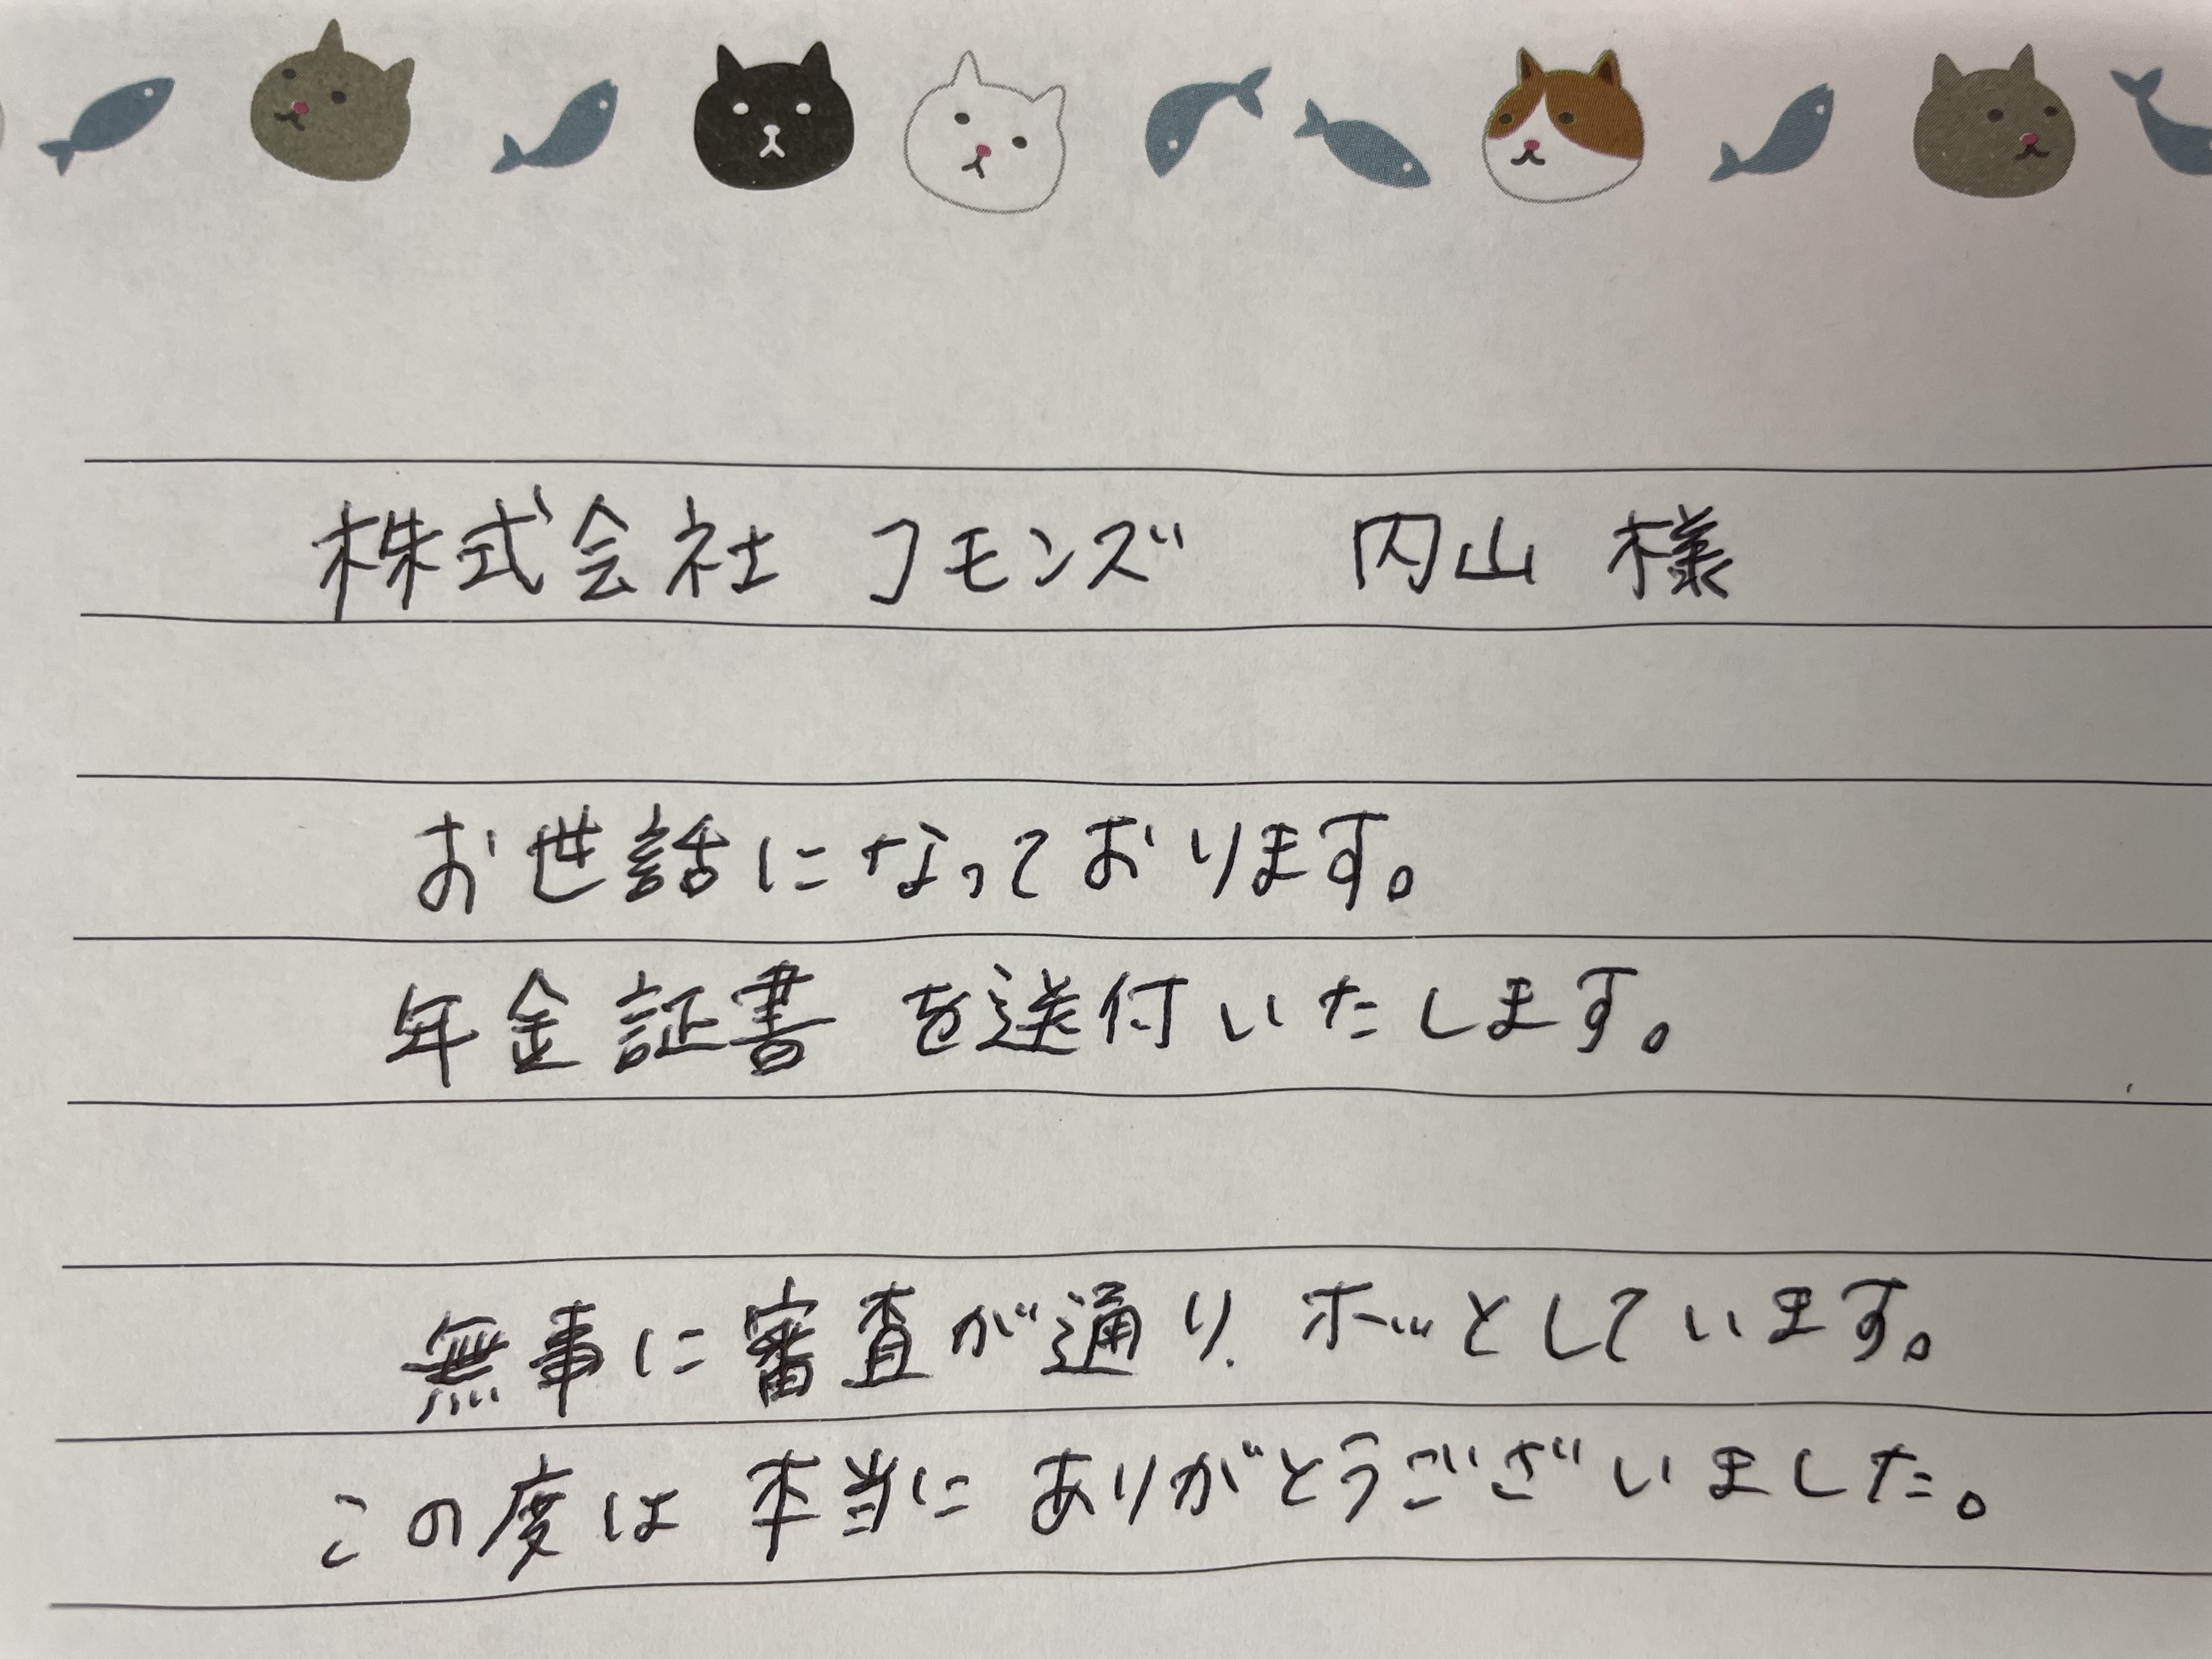 株式会社 コモンズ 内山 様
お世話になっております。
年金証書 を送付いたします。
無事に審査が通り、ホッとしています。
この度は 本当に ありがとうございました。